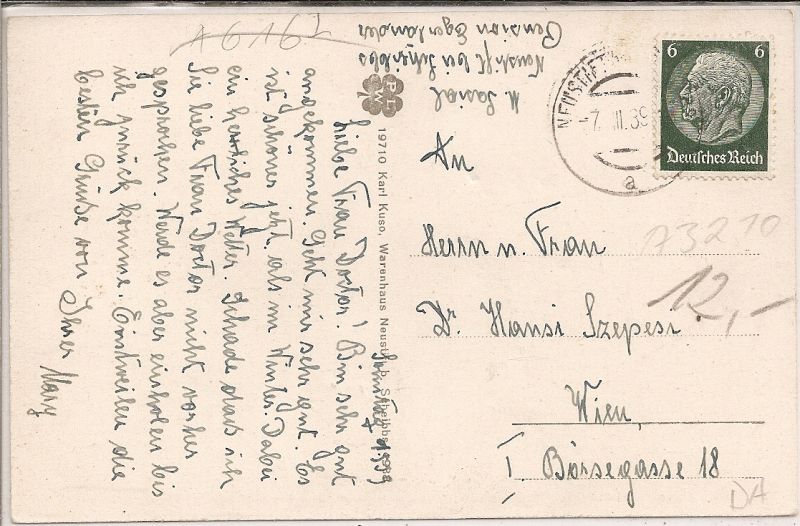 Liebe Frau Doctor! Bin sehr gut
angekommen. Geht mir sehr gut. Es
ist schöner jetzt als im Winter. Dabei
ein herrliches Wetter. Schade dass ich
Sie liebe Frau Doctor nicht vorher
gesprochen. Werde es aber einholen bis
ich zurück komme. Einstweilen die
besten Grüße von Ihrer Mary
Neustift bei Scheibbs
Pension Egerländer
A 6 16 2
19710 Karl Kuso, Warenhaus Neustift b. Scheibbs
NEUSTIFT
7. III. 39
a
6 6
Deutsches Reich
An
Herrn u. Frau
Dr. Hansi Szepesi
Wien
I. Börsegasse 18
A3210
12,-
DA